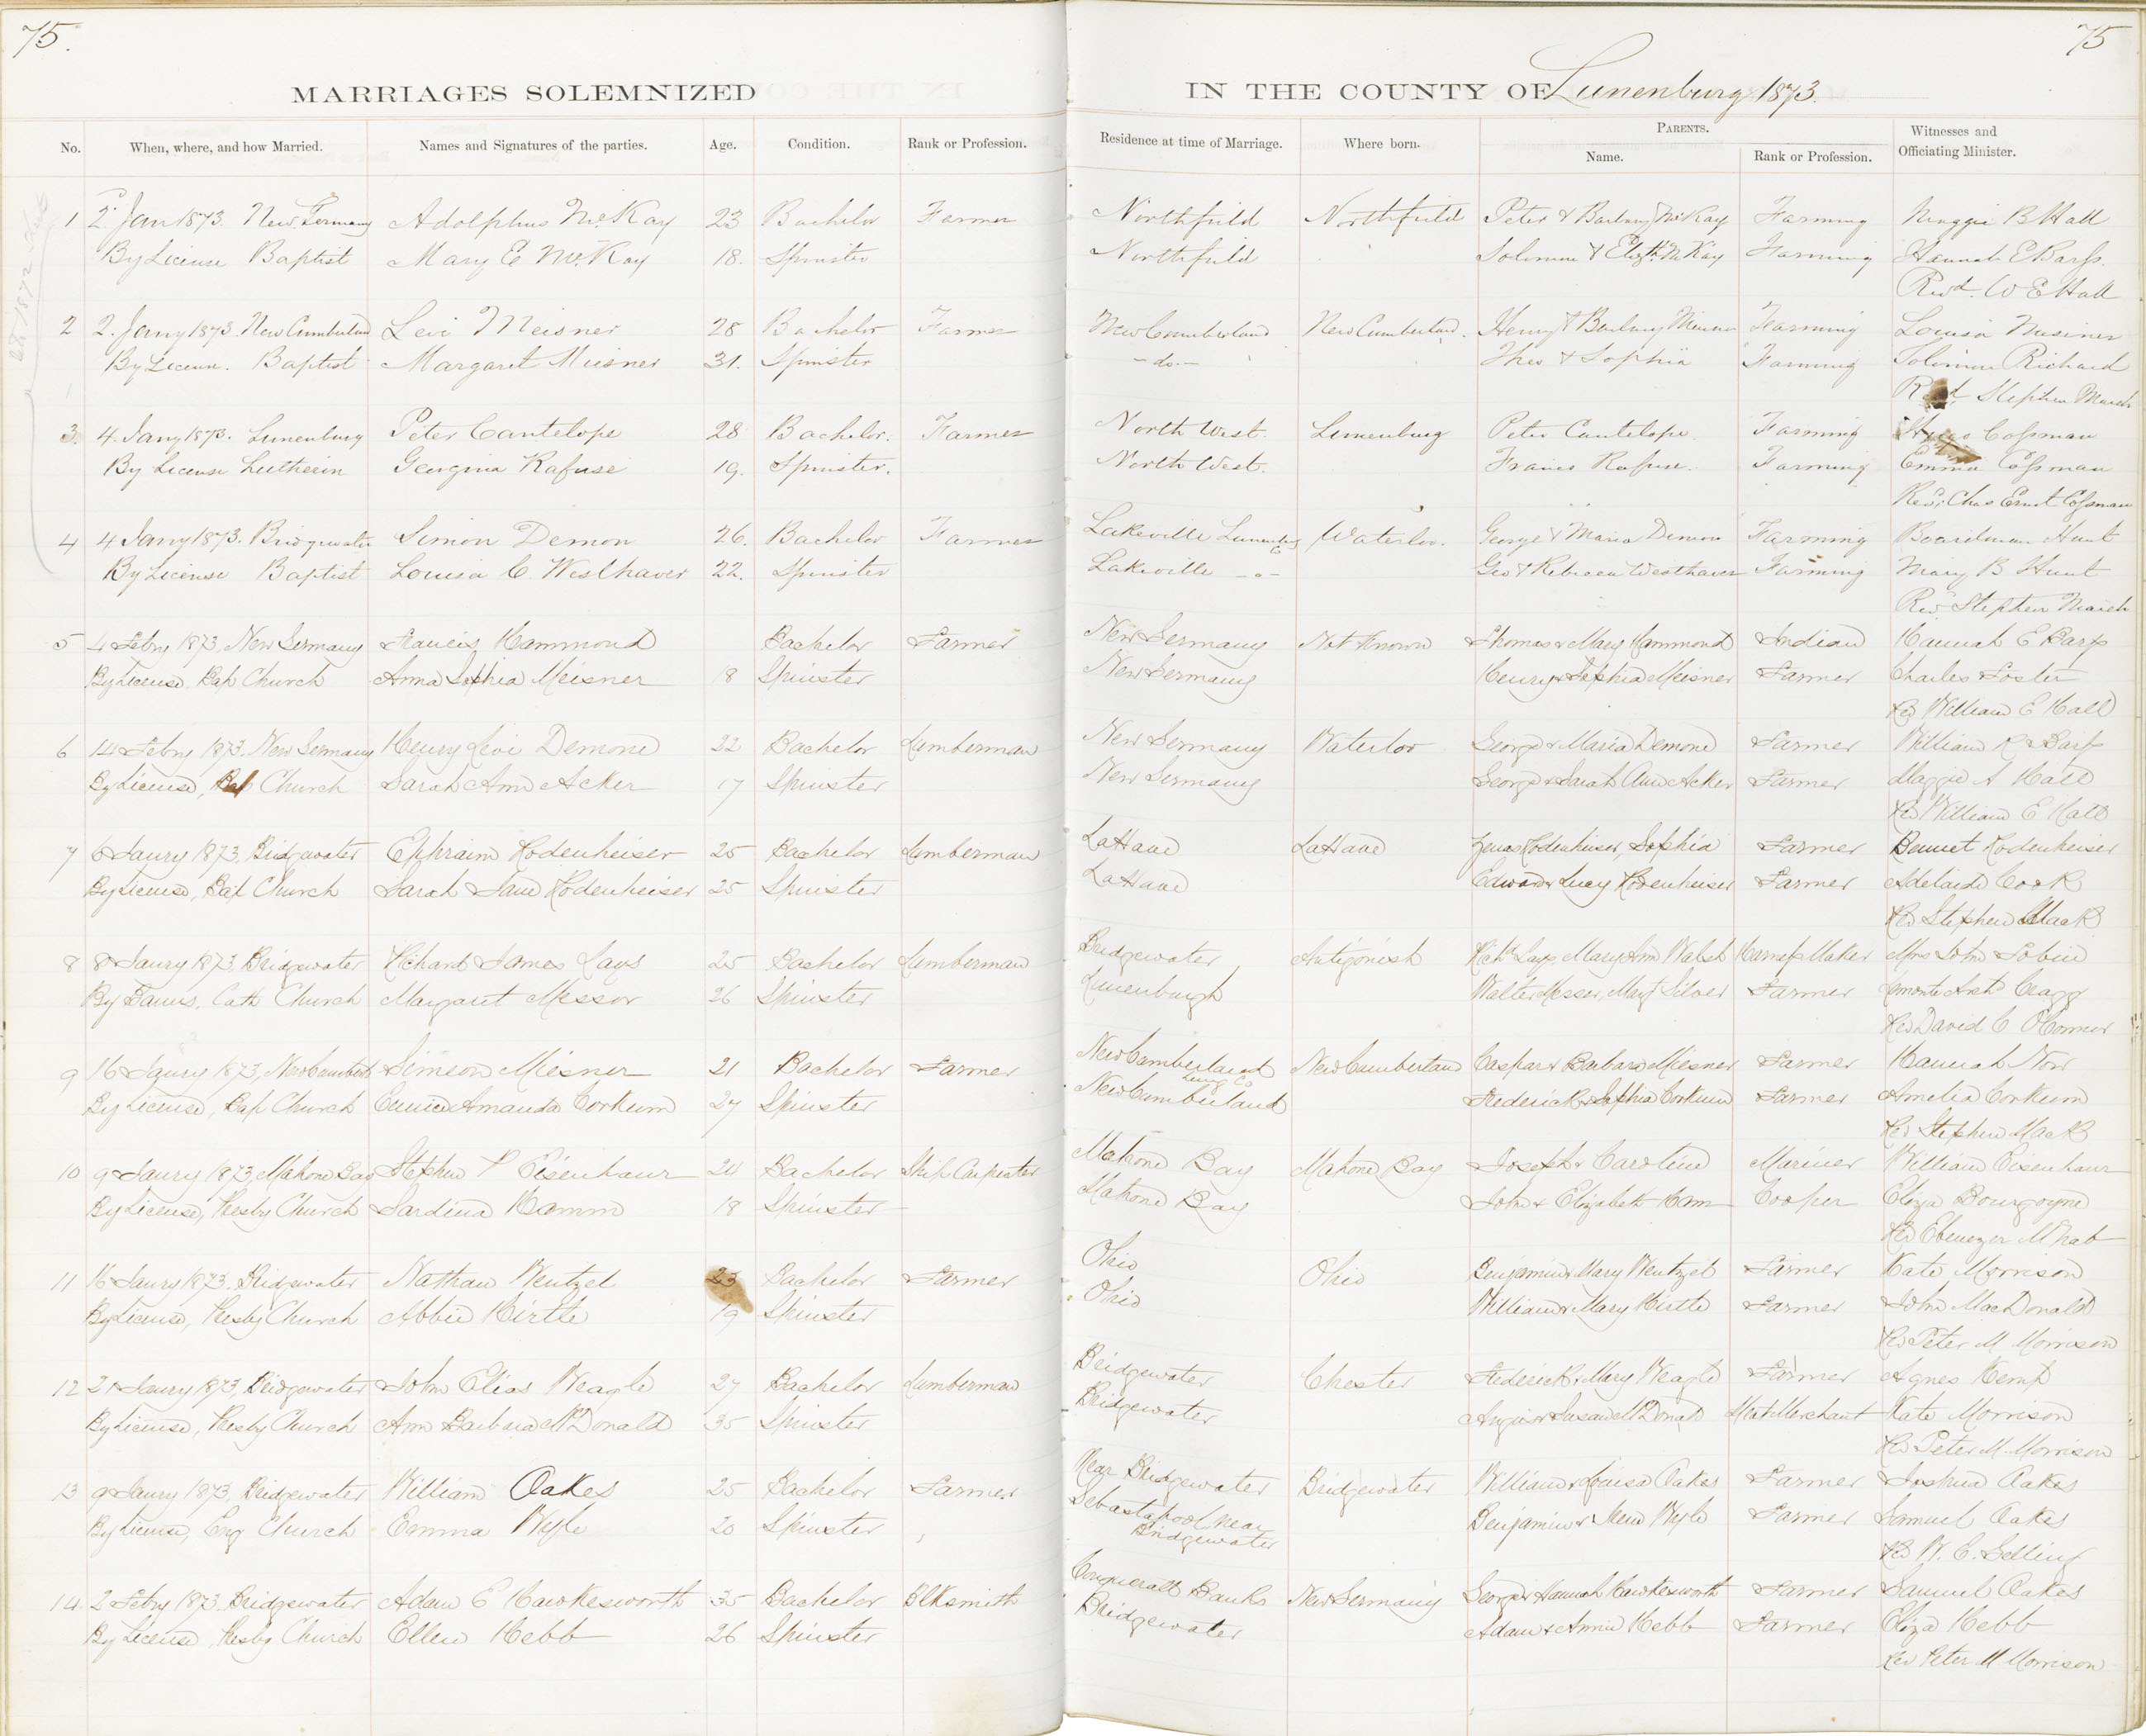 75.
75
MARRIAGES SOLEMNIZED IN THE COUNTY OF Lunenburg 1873.
No. When, where, and how Married. Names and Signatures of the parties. Age. Condition. Rank or Profession. Residence at time of Marriage. Where born. PARENTS. Name. Rank or Profession. Witnesses and Officiating Minister.
1 2 Jan 1873. New Germany Adolphus McKay 23 Bachelor Farmer Northfield Northfield Peter & Barbary McKay Farming Maggie B Hall
By License Baptist Mary E McKay 18. Spinster Northfield Solomon & Elizth McKay Farming Hannah E Barss.
Revd. W E Hall
2 2. Jany 1873 New Cumberland Levi Meisner 28 Bachelor Farmer New Cumberland New Cumberland. Henry & Barbary Farming Louisa
By License. Baptist Margaret Miesner 31. Spinster - do. - Theo & Sophia Farming Solomon Richard
Stephen March
3. 4. Jany 1873. Lunenburg Peter Cantelope 28 Bachelor. Farmer North West. Lunenburg Peter Cantelope Farming Cossman
By License Lutheran Georgina Rafuse 19. Spinster. North West. Rafuse. Farming Emma Cossman
Revd. Chas Ernst Cossman
4 4 Jany 1873. Bridgewater Simon Demon 26. Bachelor Farmer Lakeville Lunenburg Co Waterloo. George & Maria Demon Farming Boardman Hunt
By License Baptist Louisa C. Westhaver 22. Spinster Lakeville -o- Geo & Rebecca Westhaver Farming Mary B Hunt
Revd Stephen March
5 4 Febry 1873, New Germany Francis Hammond Bachelor Farmer New Germany Not Known Thomas & Mary Hammond Indian Hannah E Barss
By License, Bap Church Anna Sophia Meisner 18 Spinster New Germany Henry & Sophia Meisner Farmer Charles Foster
Rev William E Hall
6 14 Febry 1873. New Germany Henry Levi Demone 22 Bachelor Lumberman New Germany Waterloo George & Maria Demone Farmer William R Barss
By License, Bap Church Sarah Ann Acker 17 Spinster New Germany George & Sarah Ann Acker Farmer Maggie A Hall
Rev William E Hall
7 6 Janry 1873, Bridgewater Ephraim Rodenheiser 25 Bachelor Lumberman LaHave LaHave Rodenheiser, Sophia Farmer Bennet Rodenheiser
By License, Bap Church Sarah Jane Rodenheiser 25 Spinster LaHave Edward & Lucy Rodenheiser Farmer Adelaide Cook
Rev Stephen March
8 8 Janry 1873, Bridgewater Richard James Lays 25 Bachelor Lumberman Bridgewater Antigonish Richd Lays Mary Ann Walsh Harness Maker Mrs John Tobin
By Banns. Cath Church Margaret Messor 26 Spinster Lunenburgh Walter Messor, Margt Silver Farmer
Rev David C O'Connor
9 16 Janry 1873, New Cumberld Simeon Miesner 21 Bachelor Farmer New Cumberland Lung Co New Cumberland Caspar & Barbara Miesner Farmer Hannah
By License, Bap Church Eunice Amanda Corkum 27 Spinster New Cumberland Frederick & Sophia Corkum Farmer Amelia Corkum
Rev Stephen March
10 9 Janry 1873, Mahone Bay Stephen P Eisenhaur 24 Bachelor Ship Carpenter Mahone Bay Mahone Bay Joseph & Caroline Mariner William Eisenhaur
By License, Presby Church Sardina Hamm 18 Spinster Mahone Bay John & Elizabeth Ham Cooper Eliza Bourgoyne
Rev Ebenezer McNab
11 16 Janry 1873. Bridgewater Nathan Wentzel 23 Bachelor Farmer Ohio Ohio Benjamin & Mary Wentzel Farmer Kate Morrison
By License, Presby Church Abbie Hirtle 19 Spinster Ohio William & Mary Hirtle Farmer John MacDonald
Rev Peter M Morrison
12 21 Janry 1873, Bridgewater John Elias Weagle 27 Bachelor Lumberman Bridgewater Chester Frederick & Mary Weagle Farmer Agnes Kemp
By License, Presby Church Ann Barbara McDonald 35 Spinster Bridgewater Angus & Susan McDonald Merchant Kate Morrison
Rev Peter M. Morrison
13 9 Janry 1873, Bridgewater William Oakes 25 Bachelor Farmer Near Bridgewater Bridgewater William & Louisa Oakes Farmer Joshua Oakes
By License, Eng Church Emma Wyle 20 Spinster Sebastapool near Bridgewater Benjamin & Wyle Farmer Samuel Oakes
Rev W. E. Gelling
14 2 Febry 1873. Bridgewater Adam E Hawkesworth 35 Bachelor Blksmith Conquerall Banks New Germany George & Hannah Hawkesworth Farmer Samuel Oakes
By License, Presby Church Ellen Hebb 26 Spinster Bridgewater Adam & Annie Hebb Farmer Eliza Hebb
Rev Peter M Morrison